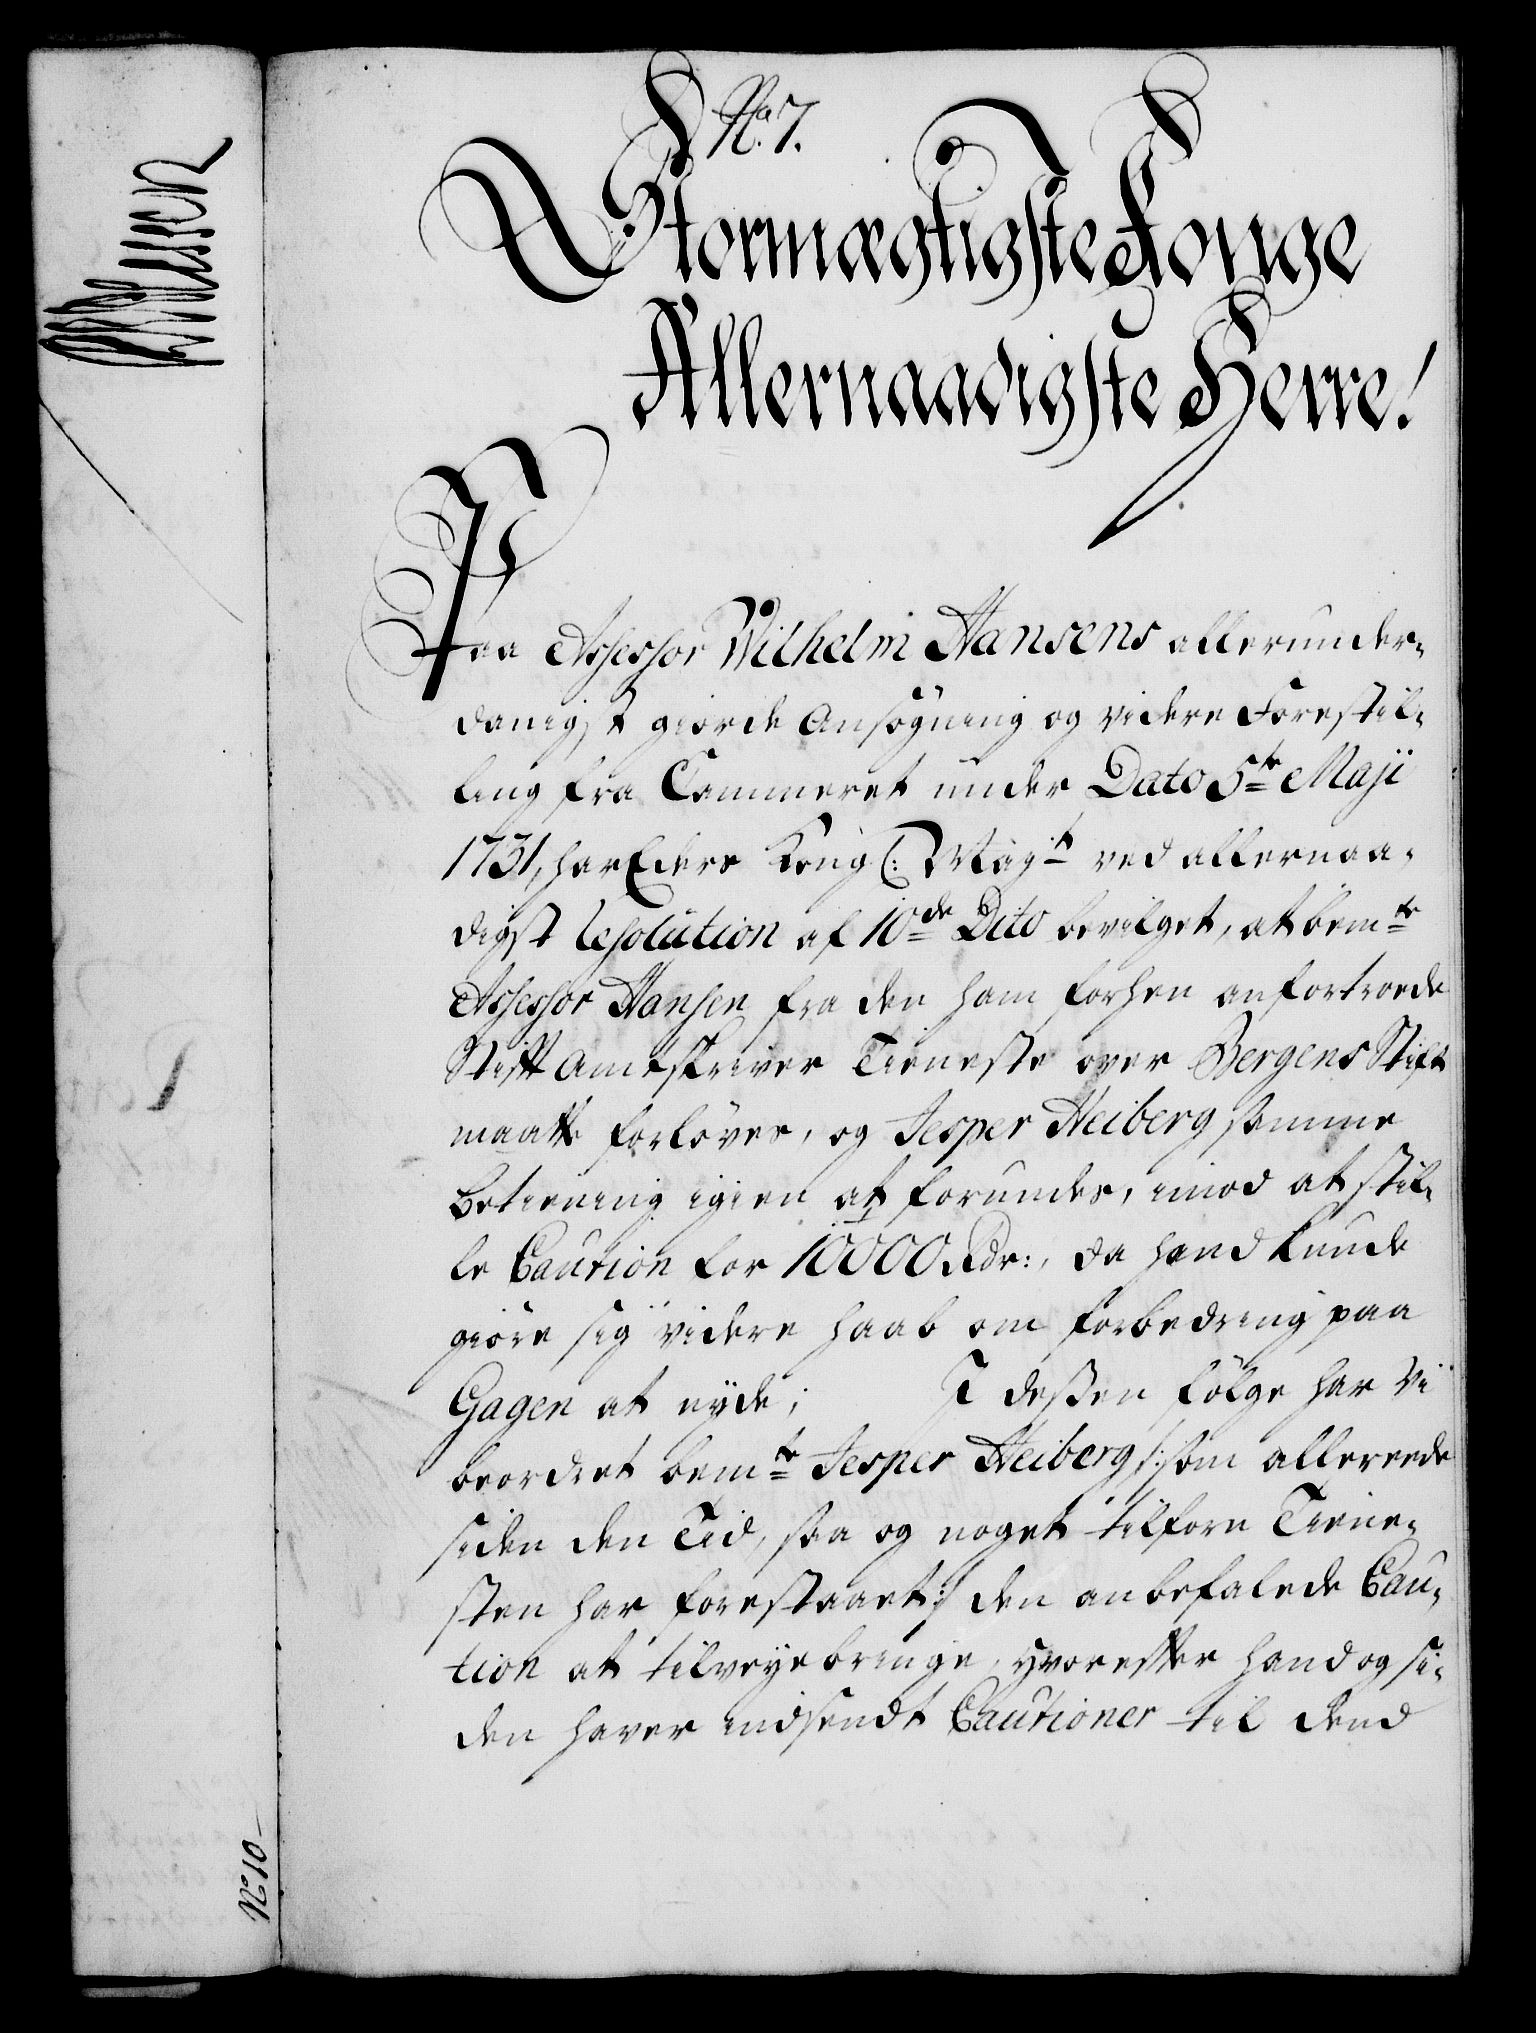 No. 7.
Stormægtigste Konge
Allernaadigste Herre!
Paa Assessor Wilhelm Hansens allerunder-
danigst giorde Ansøgning og videre Forestil-
ling fra Cammeret under Dato 5te Maji
1731, har Eders Kongl: Mayt ved allernaa-
digst Resolution af 10de Dito bevilget, at bemte
Assessor Hansen fra den ham forhen anfortroede
Stift Amtskriver Tieneste over Bergens Stift
maatte forløves, og Jesper Heiberg samme
Betiening igien at forundes, imod at stil-
le Caution for 10000 Rdr:, da hand kunde
giøre sig videre Haab om Forbedring paa
Gagen at nyde; I dessen følge har Vi
beordret bemte Jesper Heiberg /: som allereede
siden den Tid, saa og noget tilforn Tiene-
sten har forestaaet :/ den anbefalede Cau-
tion at tilveyebringe, hvorefter hand og si-
den haver indsendt Cautioner til dend
No 10